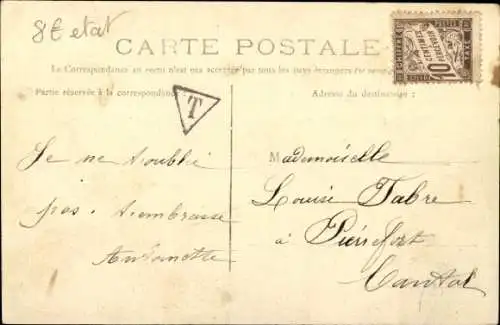 8€ etat
CARTE POSTALE
La Correspondance au recto n'est pas acceptée par tous les pays étrangers
Partie réservée à la correspondance
Adresse du destinataire :
T
CHIFFRE
POSTES
TAXE
10
CENTIMES
À PERCEVOIR
Je ne t'oublie
pas. t'embrasse
Antoinette
Mademoiselle
Louise Fabre
à Pierrefort
Cantal